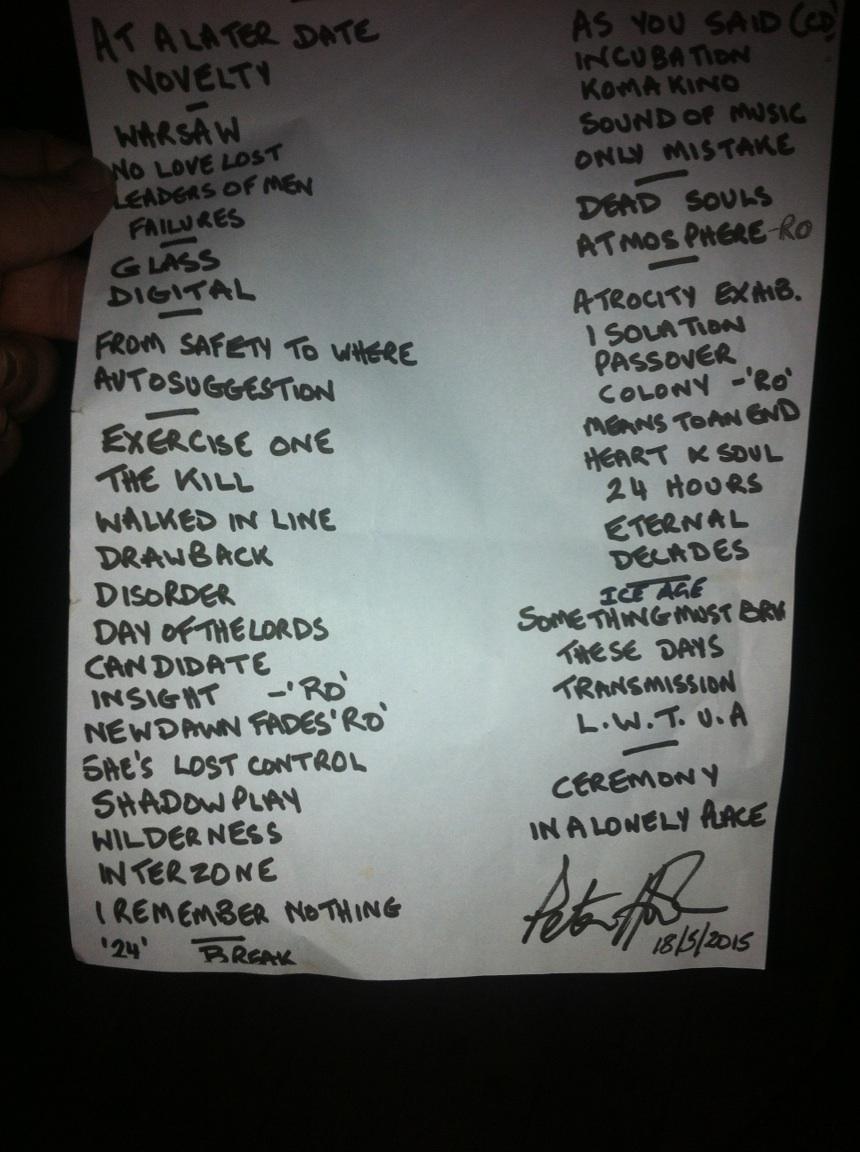 AT A LATER DATE
NOVELTY
WARSAW
NO LOVE LOST
LEADERS OF MEN
FAILURES
GLASS
DIGITAL
FROM SAFETY TO WHERE
AUTOSUGGESTION
EXERCISE ONE
THE KILL
WALKED IN LINE
DRAWBACK
DISORDER
DAY OF THE LORDS
CANDIDATE
INSIGHT -'RO'
NEW DAWN FADES 'RO'
SHE'S LOST CONTROL
SHADOWPLAY
WILDERNESS
INTERZONE
I REMEMBER NOTHING
'24' BREAK
AS YOU SAID (CD)
INCUBATION
KOMAKINO
SOUND OF MUSIC
ONLY MISTAKE
DEAD SOULS
ATMOSPHERE-RO
ATROCITY EXHIB.
ISOLATION
PASSOVER
COLONY -'RO'
MEANS TO AN END
HEART & SOUL
24 HOURS
ETERNAL
DECADES
ICE AGE
SOMETHING MUST BRK
THESE DAYS
TRANSMISSION
L.W.T.U.A
CEREMONY
IN A LONELY PLACE
Peter Hook
18/5/2015